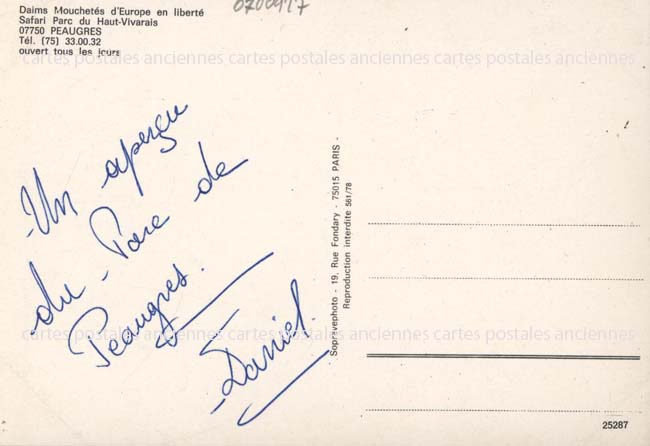 Daims Mouchetés d'Europe en liberté
Safari Parc du Haut-Vivarais
07750 PEAUGRES
Tél. (75) 33.00.32
ouvert tous les jours
0700417
cartes postales anciennes cartes postales anciennes cartes postales anciennes
Un aperçu
du Parc de
Peaugres.
Daniel.
Sopravephoto - 19, Rue Fondary - 75015 PARIS -
Reproduction interdite 561/78
cartes postales anciennes cartes postales anciennes cartes postales anciennes
25287